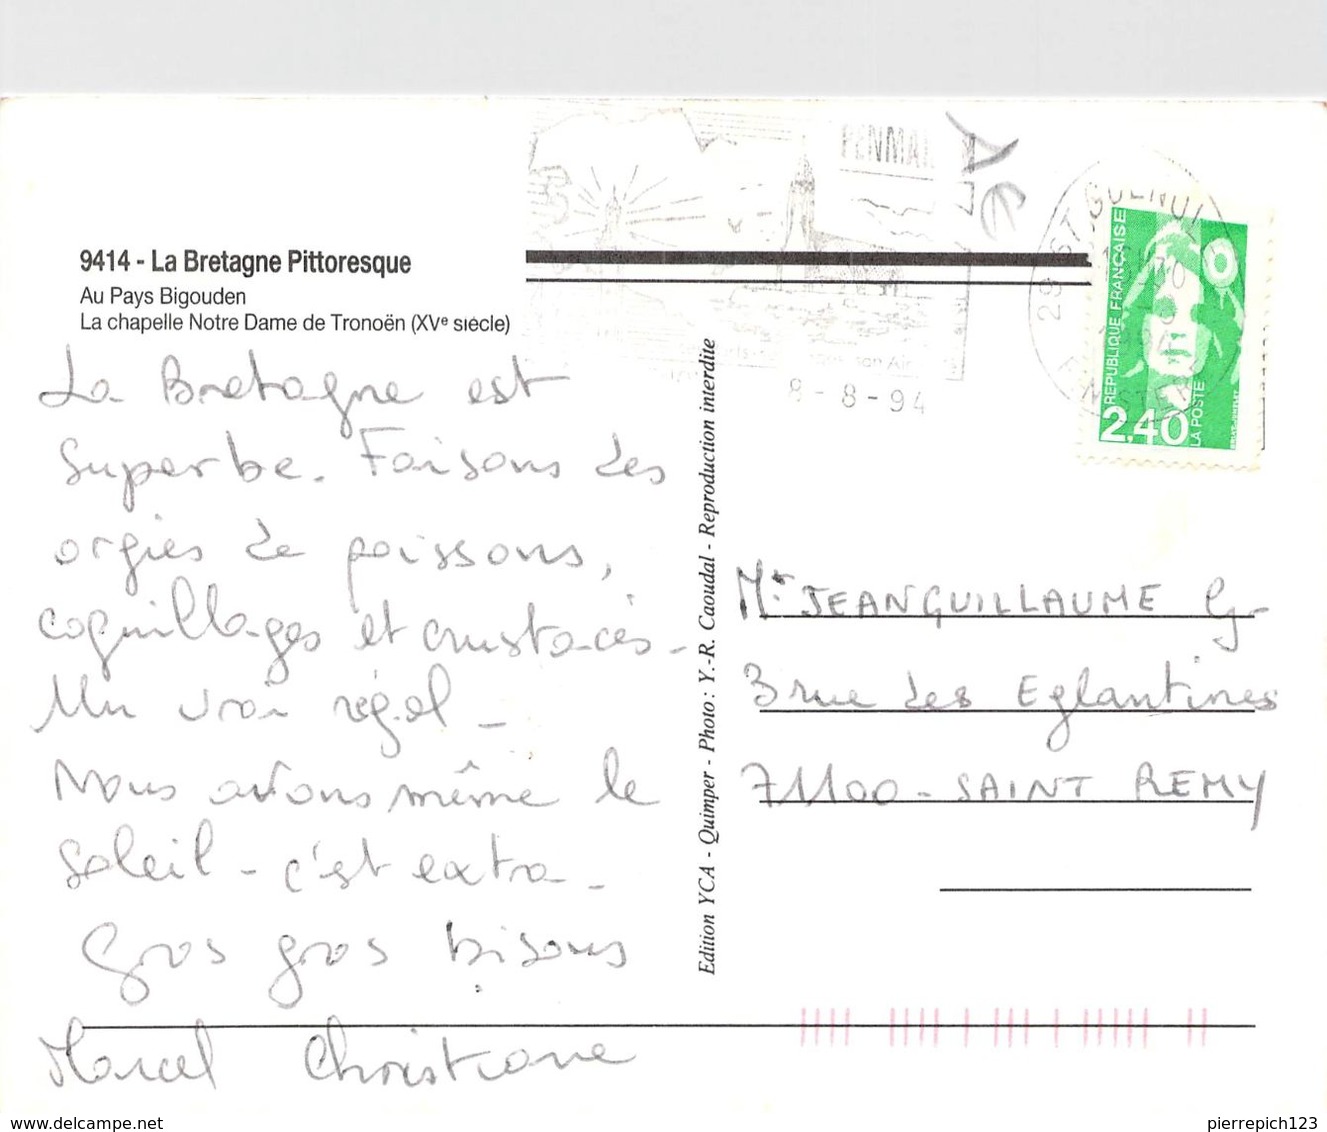 9414 - La Bretagne Pittoresque
Au Pays Bigouden
La chapelle Notre Dame de Tronoën (XVe siècle)
La Bretagne est
superbe. Faisons des
orgies de poissons,
coquillages et crustacés -
Un vrai régal -
Nous avons même le
soleil - c'est extra -
Gros gros bisous
Marcel Christiane
Edition YCA - Quimper - Photo : Y.-R. Caoudal - Reproduction interdite
PENMAR
8 - 8 - 94
29 ST GUENOLE
FINISTERE
REPUBLIQUE FRANÇAISE
2,40
LA POSTE
Mr JEANGUILLAUME G
3 rue des Eglantines
71100 - SAINT REMY
www.delcampe.net
pierrepich123